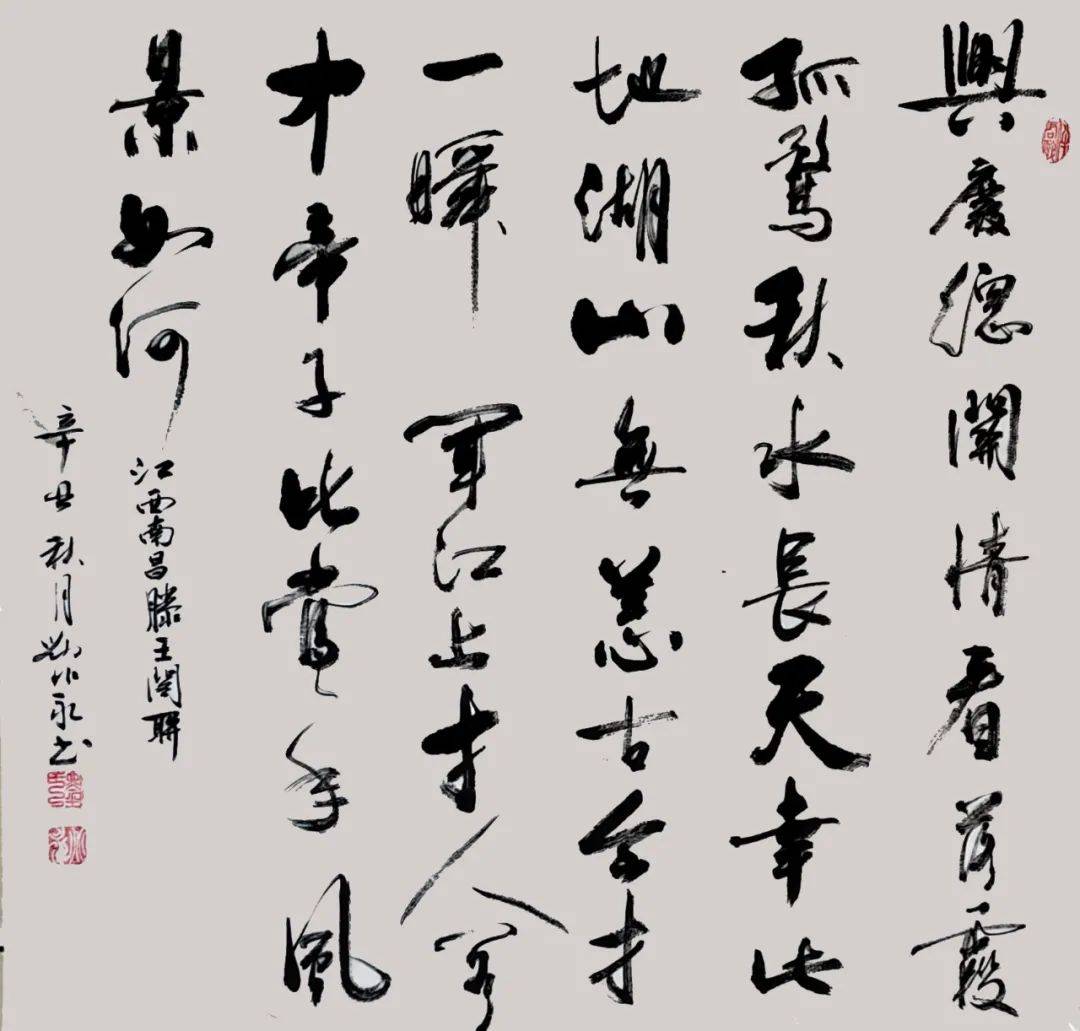 興廢總關情看落霞
孤鶩秋水長天幸此
地湖山無恙古今才
一瞬問江上才人閣
中帝子比當年風
景如何
江西南昌滕王閣聯
辛丑秋月永书